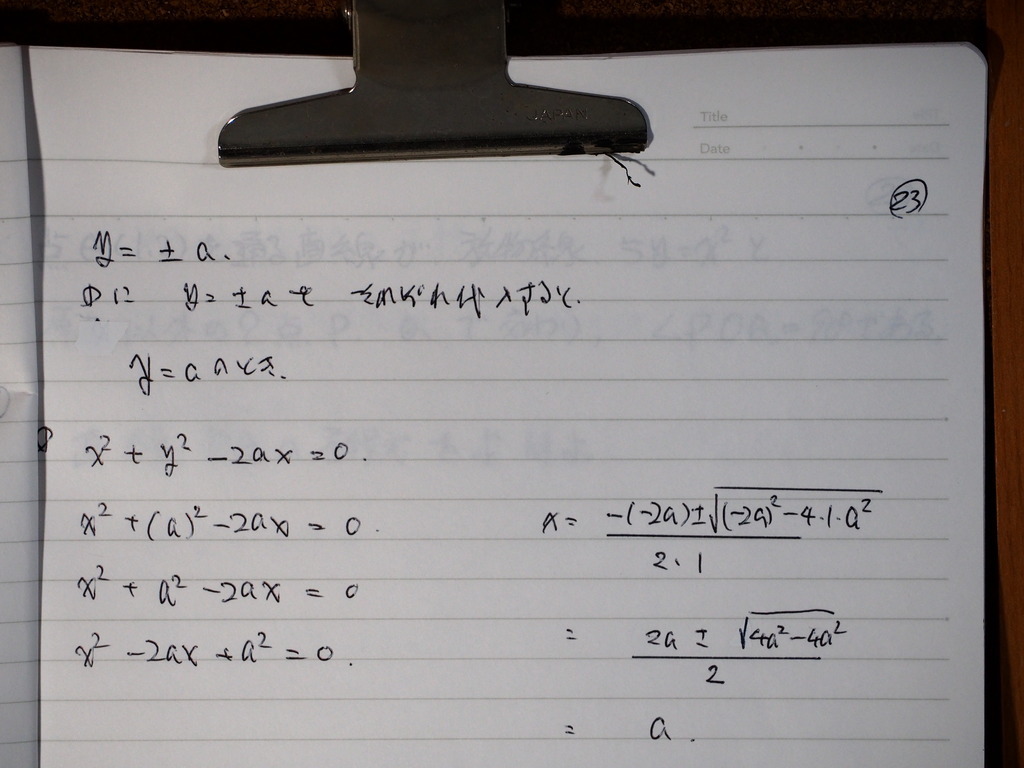 JAPAN
Title
Date
23
y = ± a.
①に y = ± a を それぞれ代入すると.
y = a のとき.
x² + y² - 2ax = 0.
x² + (a)² - 2ax = 0.
x² + a² - 2ax = 0
x² - 2ax + a² = 0.
x = \frac{-(-2a) ± \sqrt{(-2a)² - 4·1·a²}}{2·1}
= \frac{2a ± \sqrt{4a² - 4a²}}{2}
= a.